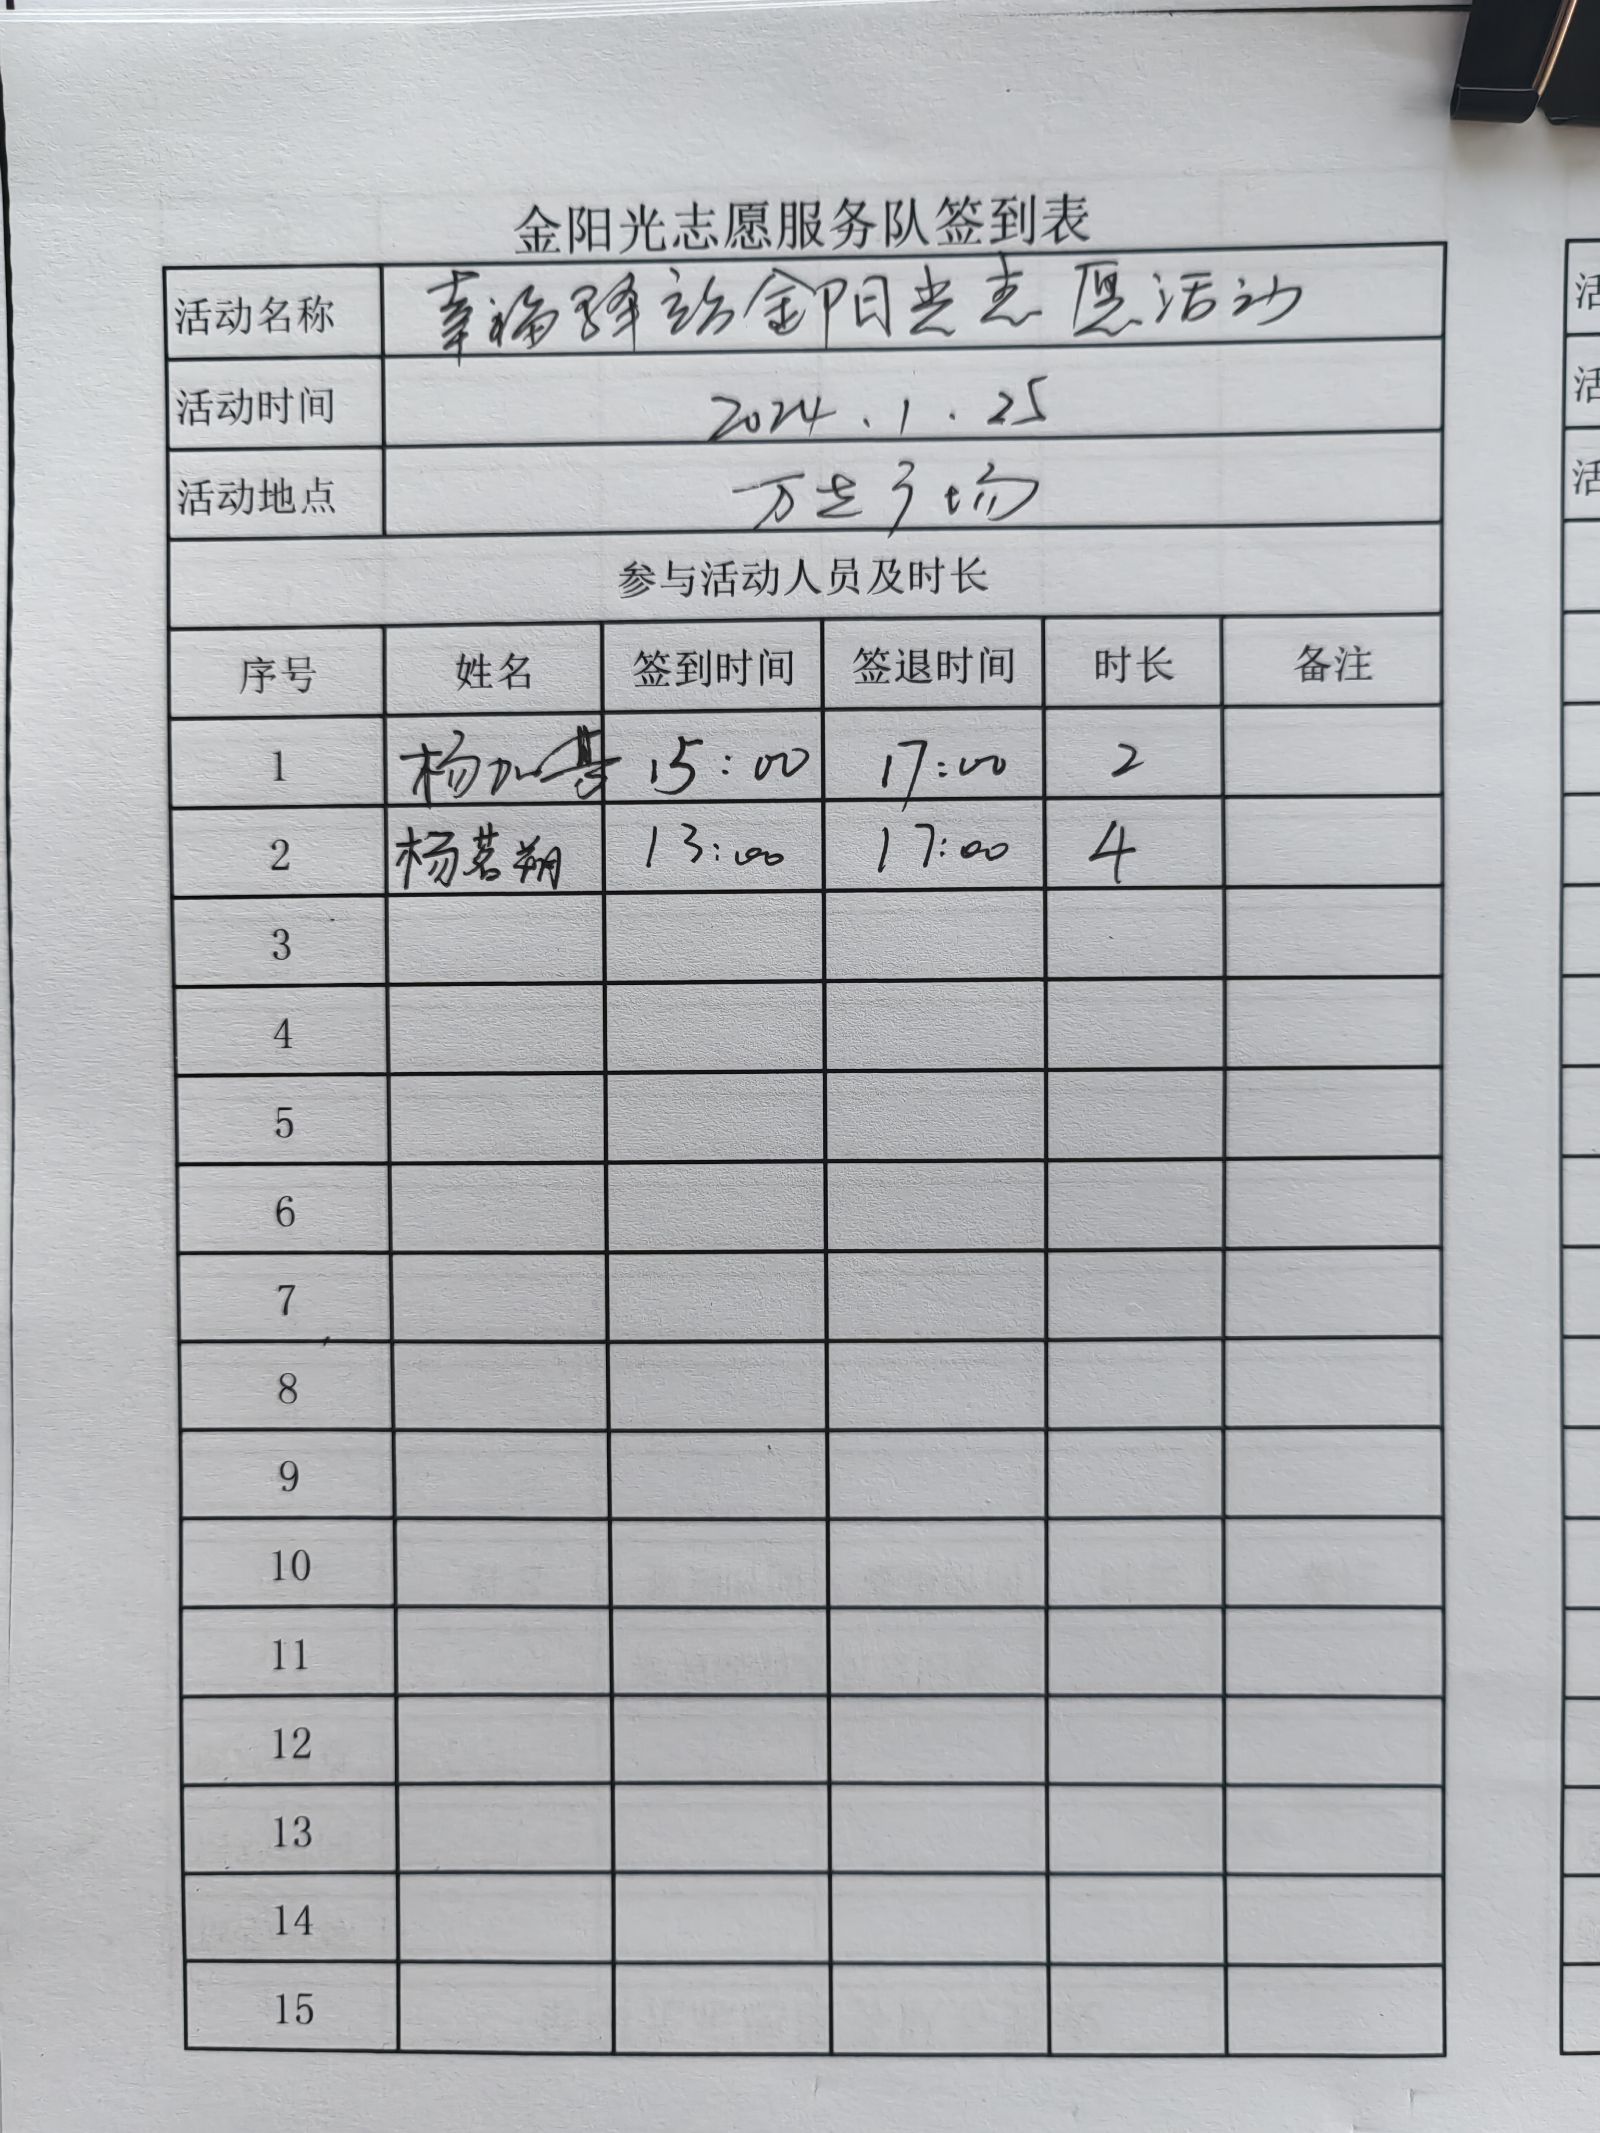 金阳光志愿服务队签到表
活动名称 幸福驿站金阳光志愿活动 活
活动时间 2024.1.25 活
活动地点 万达广场 活
参与活动人员及时长
序号 姓名 签到时间 签退时间 时长 备注
1 杨加 15:00 17:00 2
2 杨茗朔 13:00 17:00 4
3
4
5
6
7
8
9
10
11
12
13
14
15